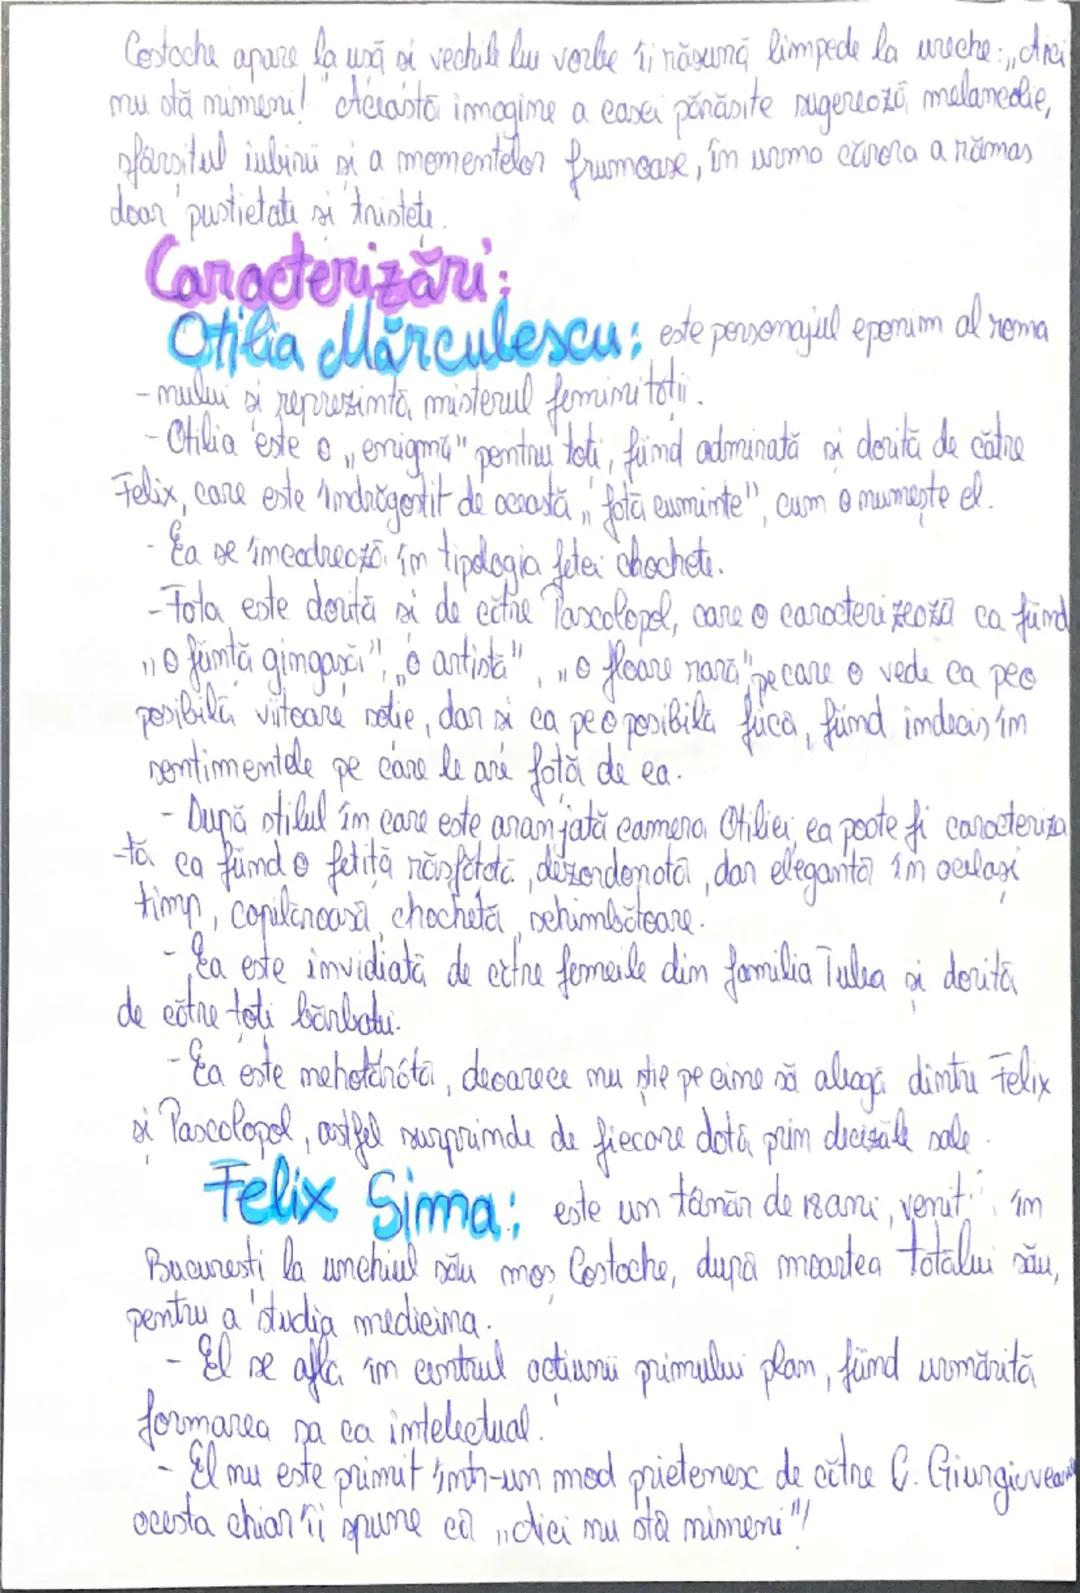 Costache apare la ușă și vechile lui vorbe îi răsună limpede la ureche: „Aici
nu stă nimeni!" Această imagine a casei părăsite sugerează melancolie,
sfârșitul iubirii și a momentelor frumoase, în urma cărora a rămas
doar pustietate și tristețe.
Caracterizări:
Otilia Mărculescu: este personajul eponim al roma
-nului și reprezintă misterul feminității.
- Otilia este o „enigmă" pentru toți, fiind admirată și dorită de către
Felix, care este îndrăgostit de această „fată cuminte", cum o numește el.
- Ea se încadrează în tipologia fetei chochete.
- Fata este dorită și de către Pascalopol, care o caracterizează ca fiind
„o ființă gingașă", „o artistă", „o floare rară", pe care o vede ca pe o
posibilă viitoare soție, dar și ca pe o posibilă fiică, fiind indecis în
sentimentele pe care le are față de ea.
- După stilul în care este aranjată camera Otiliei, ea poate fi caracteriza
-tă ca fiind o fetiță răsfățată, dezordonată, dar elegantă în același
timp, copilăroasă, chochetă, schimbătoare.
- Ea este invidiată de către femeile din familia Tulea și dorită
de către toți bărbații.
- Ea este nehotărâtă, deoarece nu știe pe cine să aleagă dintre Felix
și Pascalopol, astfel surprinde de fiecare dată prin deciziile sale.
Felix Sima: este un tânăr de 18 ani, venit în
București la unchiul său moș Costache, după moartea tatălui său,
pentru a studia medicina.
- El se află în centrul acțiunii primului plan, fiind urmărită
formarea sa ca intelectual.
- El nu este primit într-un mod prietenesc de către C. Giurgiuveanu
acesta chiar îi spune că „Aici nu stă nimeni"!